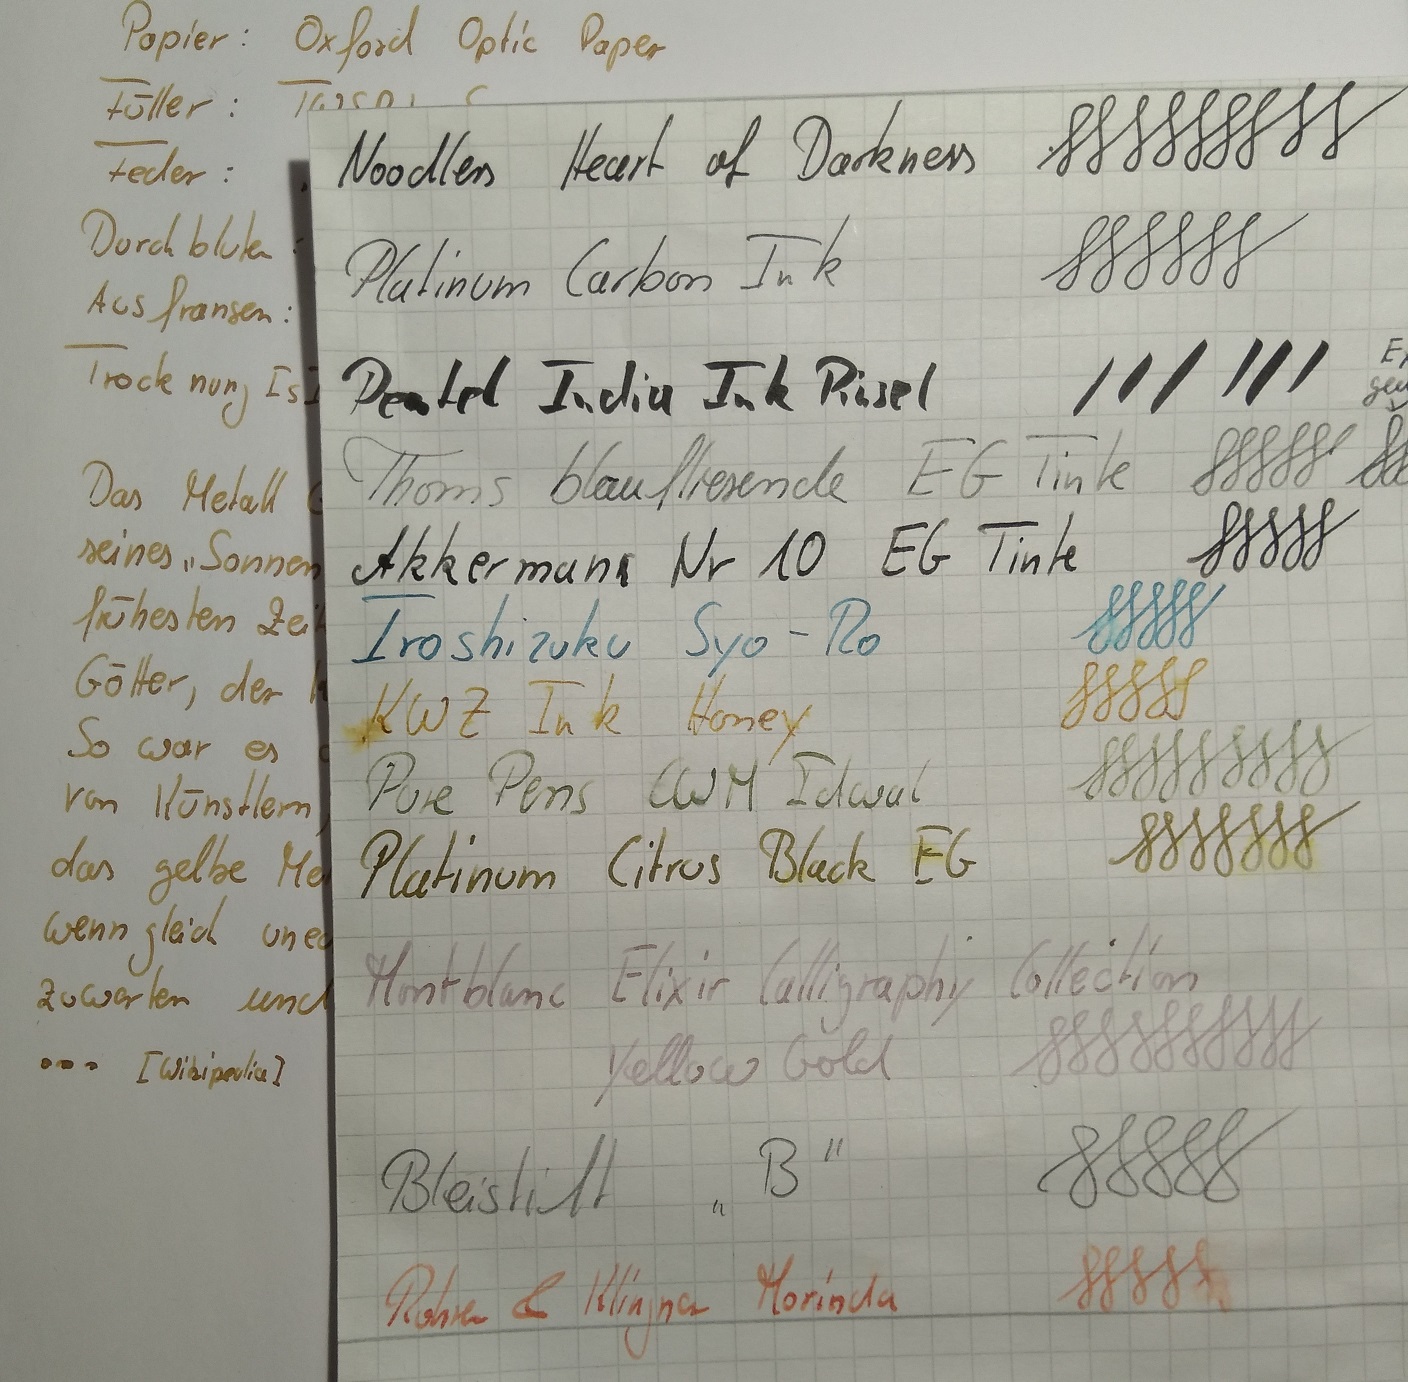 Papier: Oxford Optic Paper
Füller:
Feder:
Durchbluten:
Ausfransen:
Trocknung
Das Metall
seines „Sonnen
frühesten
Götter, der
So war es
von Künstlern,
das gelbe
wenngleich
zuwarten und
... [Wikipedia]
Noodlers Heart of Darkness
Platinum Carbon Ink
Pentel India Ink Pinsel
Thoms blaufliesende EG Tinte
Akkermann Nr 10 EG Tinte
Iroshizuku Syo-Ro
KWZ Ink Honey
Pure Pens CWM Idwal
Platinum Citrus Black EG
Montblanc Elixir Calligraphy Collection
Yellow Gold
Bleistift „B"
Rohrer & Klingner Morinda